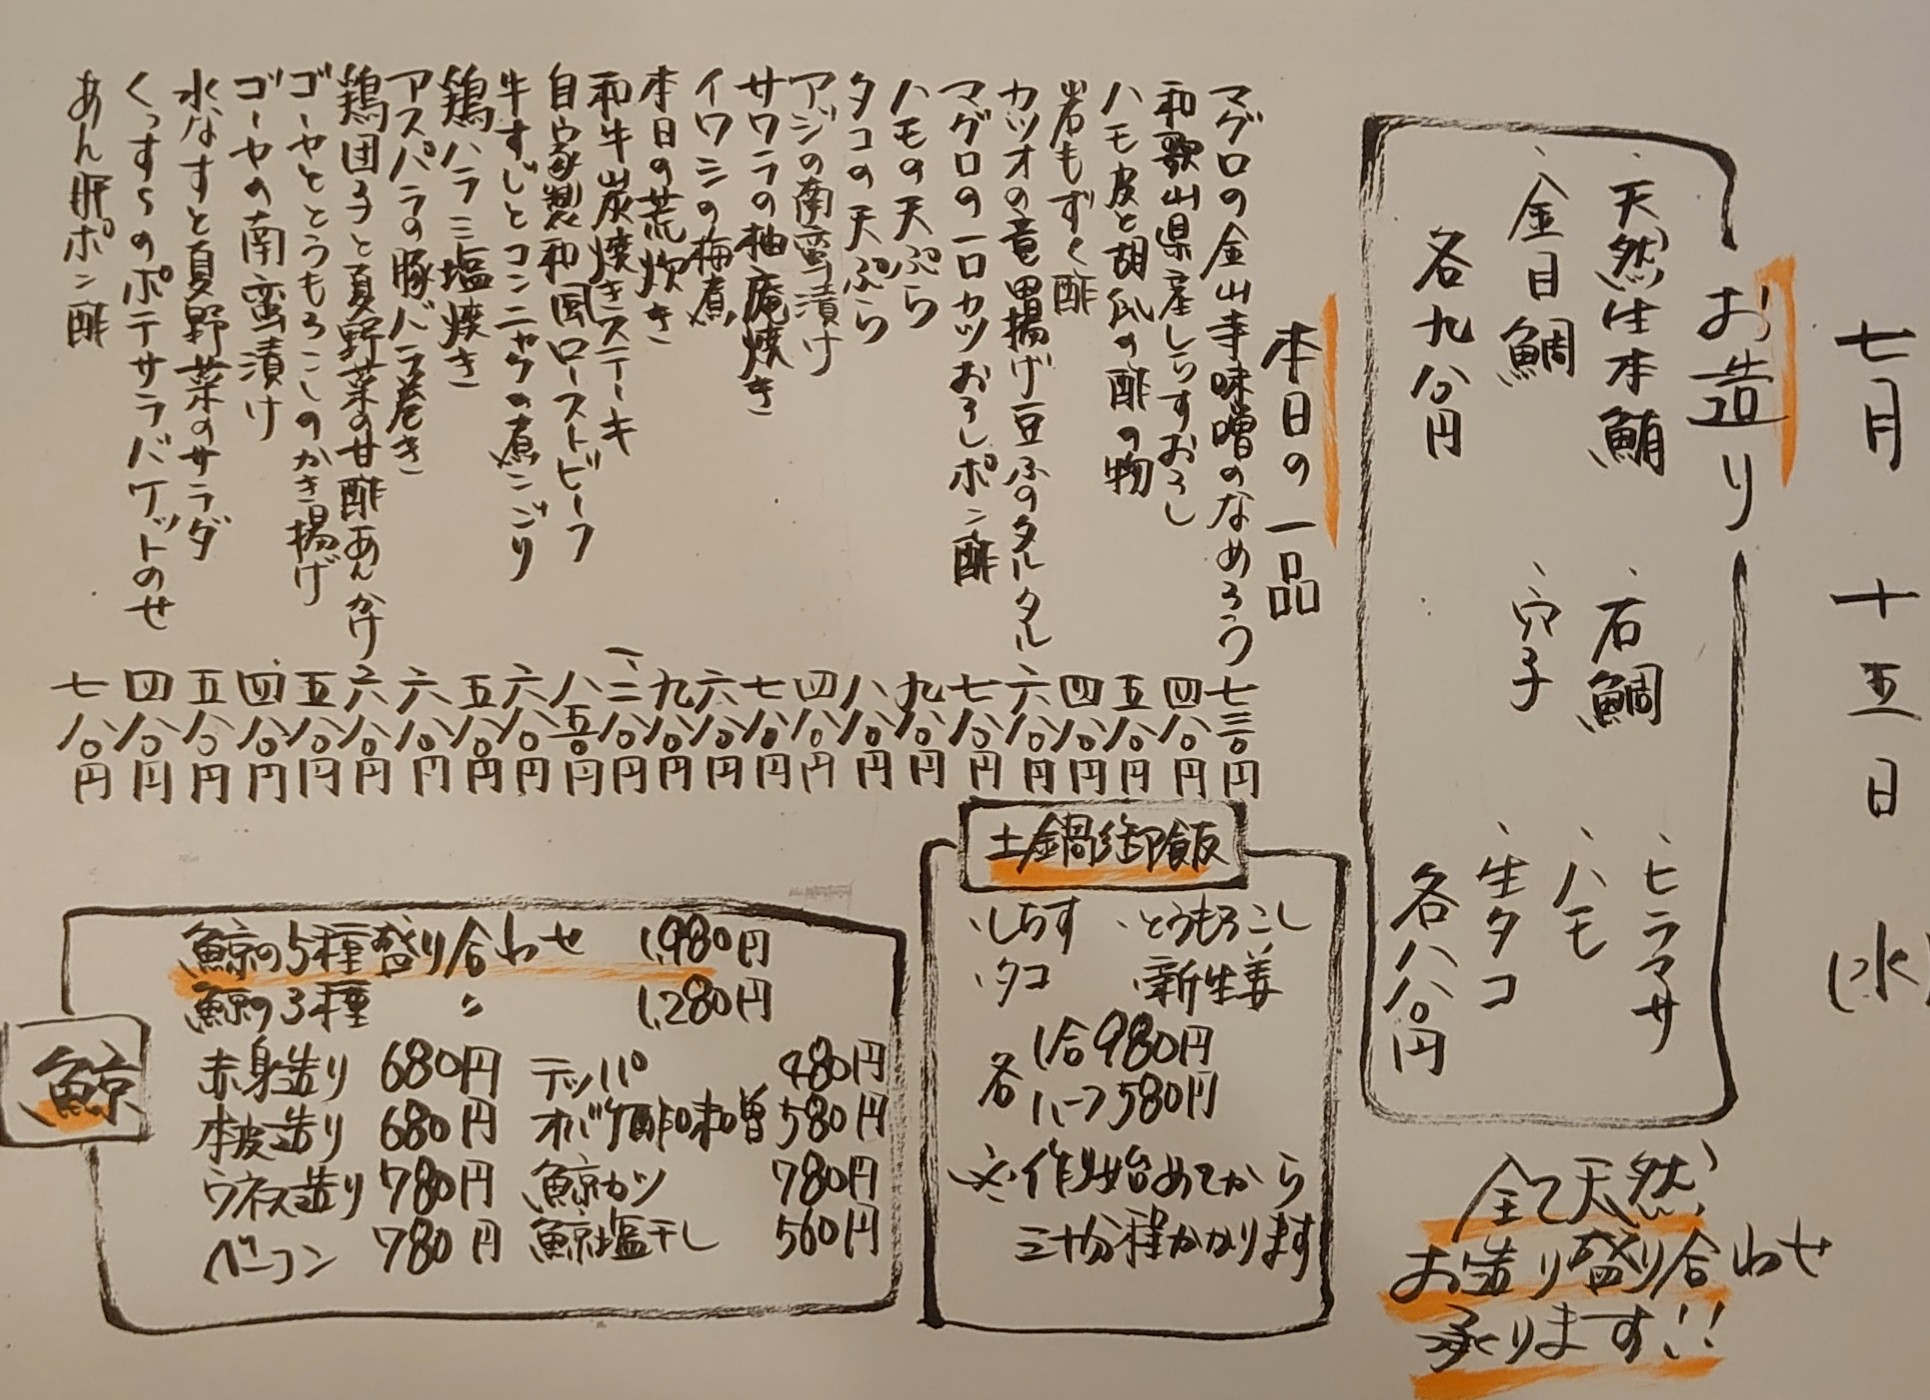 七月 十五日 (水)
お造り
・天然生本鮪
・金目鯛
各九八〇円
・石鯛
・穴子
・ヒラマサ
・ハモ
・生タコ
各八八〇円
全て天然
お造り盛り合わせ
承ります!!
本日の一品
マグロの金山寺味噌のなめろう 七三〇円
和歌山県産しらすおろし 四八〇円
ハモ皮と胡瓜の酢の物 五八〇円
岩もずく酢 四八〇円
カツオの竜田揚げ豆ふのタルタル 六八〇円
マグロの一口カツおろしポン酢 七八〇円
ハモの天ぷら 九八〇円
タコの天ぷら 八八〇円
アジの南蛮漬け 四八〇円
サワラの柚庵焼き 七八〇円
イワシの梅煮 六八〇円
本日の荒炊き 九八〇円
和牛炭焼きステーキ 一、二八〇円
自家製和風ローストビーフ 八五〇円
牛すじとコンニャクの煮こごり 六八〇円
鶏ハラミ塩焼き 五八〇円
アスパラの豚バラ巻き 六八〇円
鶏団子と夏野菜の甘酢あんかけ 六八〇円
ゴーヤととうもろこしのかき揚げ 五八〇円
ゴーヤの南蛮漬け 四八〇円
水なすと夏野菜のサラダ 五八〇円
くっすらのポテサラバケットのせ 四八〇円
あん肝ポン酢 七八〇円
土鍋御飯
・しらす ・とうもろこし
・タコ ・新生姜
各 1合980円
ハーフ580円
※作り始めてから
三十分程かかります
鯨
鯨の5種盛り合わせ 1,980円
鯨の3種 〃 1,280円
赤身造り 680円 テッパ 480円
本皮造り 680円 オバケ酢味噌 580円
ウネス造り 780円 鯨カツ 780円
ベーコン 780円 鯨塩干し 560円